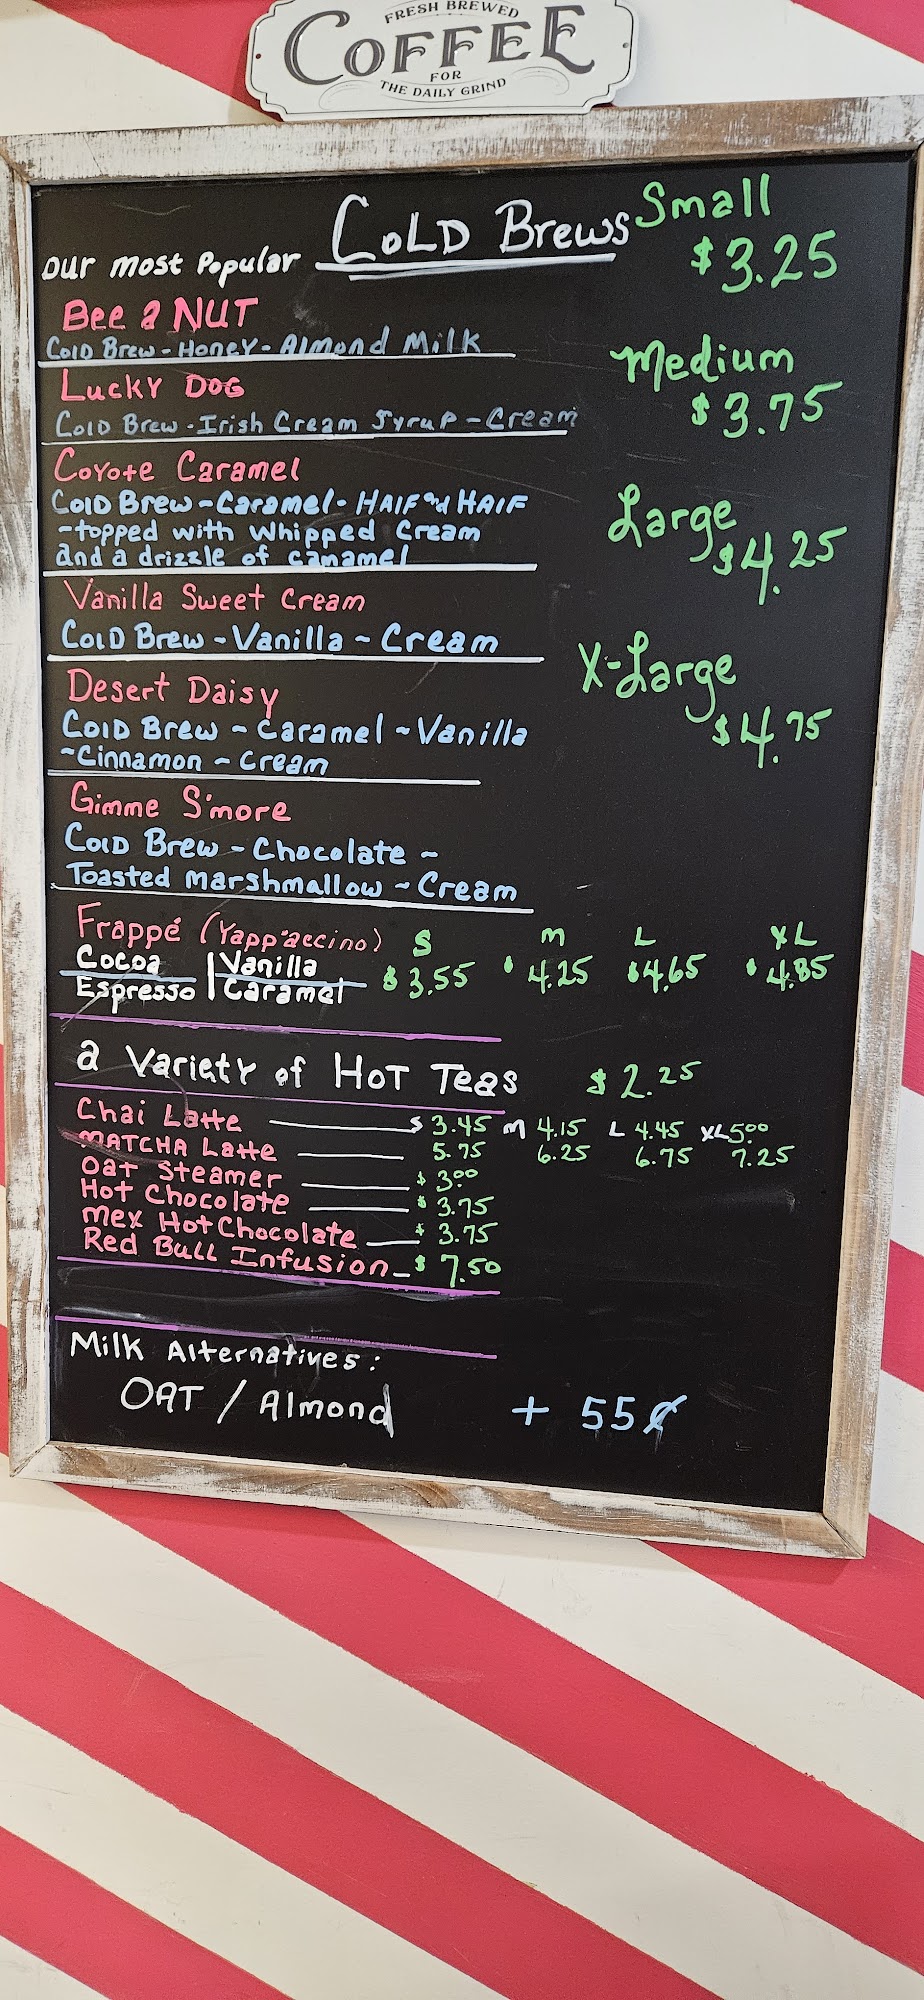 FRESH BREWED
COFFEE
FOR
THE DAILY GRIND
Our most Popular COLD Brews
Small
$3.25
Bee a NUT
Cold Brew - Honey - Almond Milk
Medium
$3.75
Lucky Dog
Cold Brew - Irish Cream Syrup - Cream
Coyote Caramel
Cold Brew - Caramel - HAlF and HAlF
- topped with whipped Cream
and a drizzle of caramel
Large
$4.25
Vanilla Sweet Cream
Cold Brew - Vanilla - Cream
X-Large
$4.75
Desert Daisy
Cold Brew - Caramel - Vanilla
- Cinnamon - Cream
Gimme S'more
Cold Brew - Chocolate -
Toasted Marshmallow - Cream
Frappé (Yapp'accino) S M L XL
Cocoa | Vanilla $3.55 $4.25 $4.65 $4.85
Espresso | Caramel
a Variety of Hot Teas $2.25
Chai Latte S 3.45 M 4.15 L 4.45 XL 5.00
MATCHA Latte 5.75 6.25 6.75 7.25
Oat Steamer $3.00
Hot Chocolate $3.75
Mex Hot Chocolate $3.75
Red Bull Infusion $7.50
Milk Alternatives:
OAT / Almond + 55¢